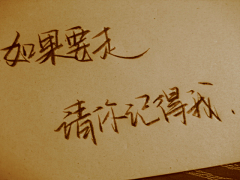 如果要走
请你记得我.